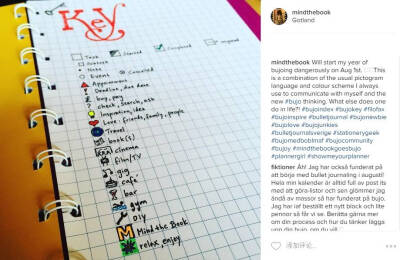 Key
Task Started Completed
Appoint
Note
Event Cancelled
Deadline, due date
buy, pay
check, search, ask
Inspiration, idea
Love: friends, family, people
Travel
book(s)
cinema
film/TV
gig
café
bar
gym
DIY
Mind the Book
relax, enjoy
mindthebook
Gotland
mindthebook Will start my year of
bujoing dangerously on Aug 1st.
This is a combination of the usual pictogram
language and colour scheme I always
use to communicate with myself and the
new #bujo thinking. What else does one
do in life? #bujoindex #bujokey #filofax
#bujoinspire #bulletjournal #bujonewbie
#bujolove #bujojunkies
#bulletjournalsverige #stationerygeek
#bujomedboblmaf #bujocommunity
#bujoy #mindthebookgoesbujo
#plannergirl #showmeyourplanner
fiktioner Åh! Jag har också funderat på
att börja med bullet journaling i augusti!
Hela min kalender är alltid full av post its
med att göra-listor och sen glömmer jag
ändå av massor så har funderat på bujo.
Jag har iaf beställt ett nytt block och lite
pennor så får vi se. Berätta gärna mer
om din process och hur du tänker läggs
upp din bujo, om du vill
添加评论...